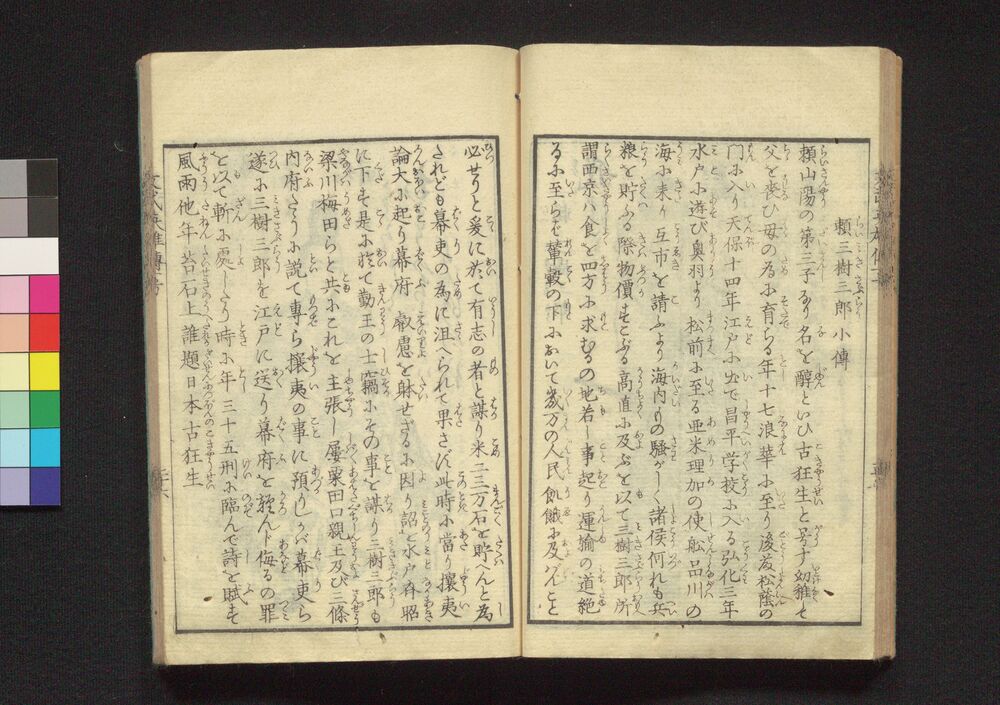 頼三樹三郎小傳
頼山陽の第三子なり名を醇といひ古狂生と号す幼稚して
父を喪ひ母の為に育らる年十七浪華に至り後藤松蔭の
門に入り天保十四年江戸に出で昌平学校に入る弘化三年
水戸に遊び奥羽より松前に至る亜米理加の使舩品川の
海に来り互市を請ふより海内の騒がしく諸侯何れも兵
粮を貯ふる際物價すこぶる高直に及ぶを以て三樹三郎所
謂西京ハ食を四方に求むるの地若し事起り運輸の道絶
るに至らバ輦轂の下において幾万の人民飢餓に及バんこと
必せりと爰に於て有志の者と謀り米二三万石を貯へんと為
されども幕吏の為に沮へられて果さず此時に當り攘夷
論大に起り幕府 叡慮を躰せざるに因り詔を水戸斉昭
に下す是に於て勤王の士竊にその事を謀り三樹三郎も
梁川梅田らと共にこれを主張し屡粟田口親王及び三條
内府たちに説て専ら攘夷の事に預りしかバ幕吏ら
遂に三樹三郎を江戸に送り幕府を軽んド侮るの罪
を以て斬に處したり時に年三十五刑に臨んで詩を賦す
風雨他年苔石上誰題日本古狂生